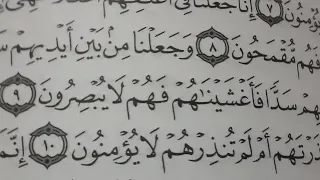 ؤْمِنُونَ ٧ إِنَّا جَعَلْنَا فِىٓ
فَهُم مُّقْمَحُونَ ٨ وَجَعَلْنَا مِنۢ بَيْنِ أَيْدِيهِمْ
سَدًّا فَأَغْشَيْنَٰهُمْ فَهُمْ لَا يُبْصِرُونَ ٩
ذَرْتَهُمْ أَمْ لَمْ تُنذِرْهُمْ لَا يُؤْمِنُونَ ١٠ إِنَّمَا